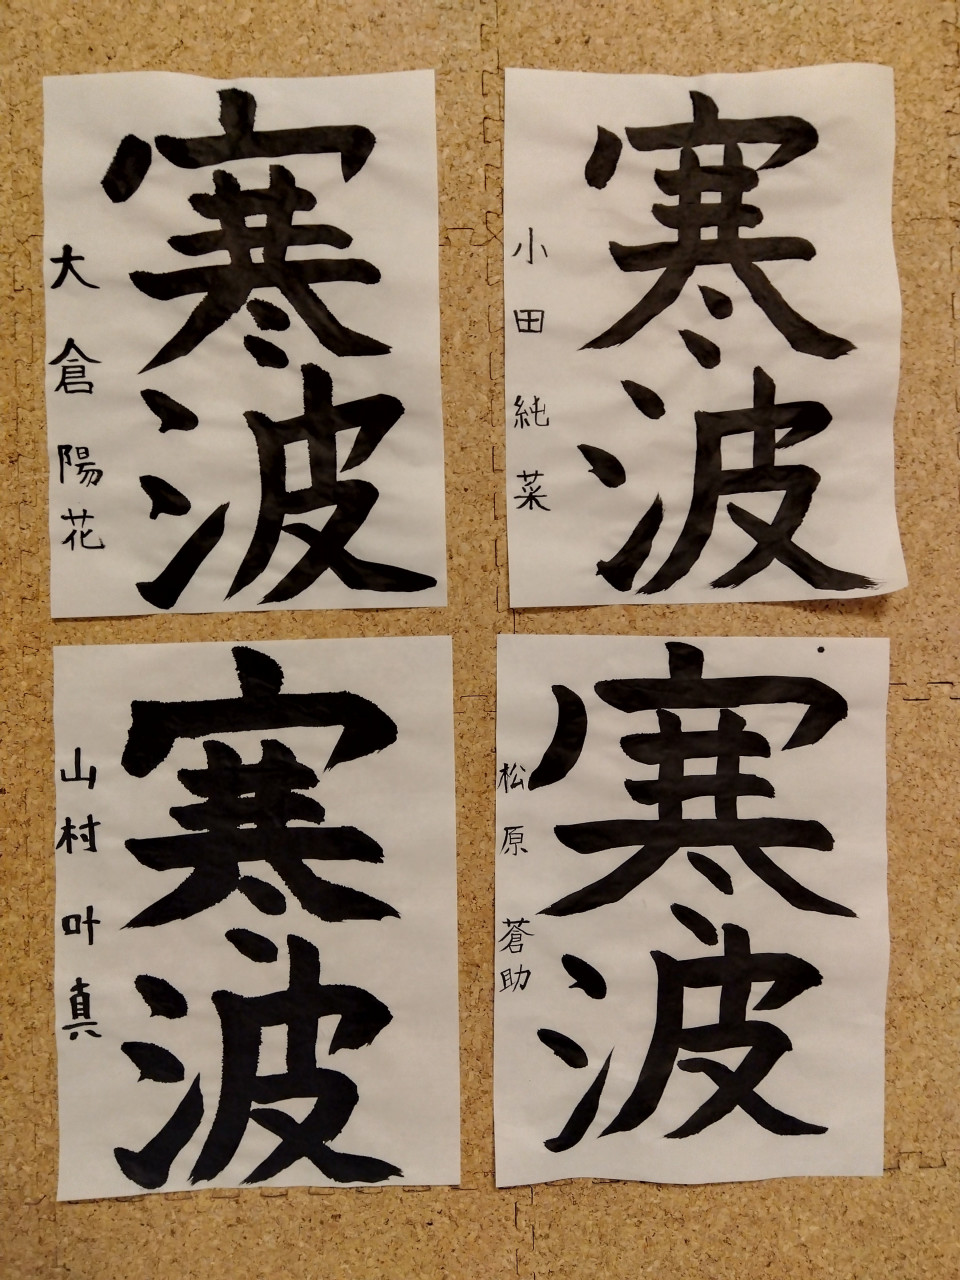 寒波
大倉陽花
寒波
小田純菜
寒波
山村叶真
寒波
松原蒼助